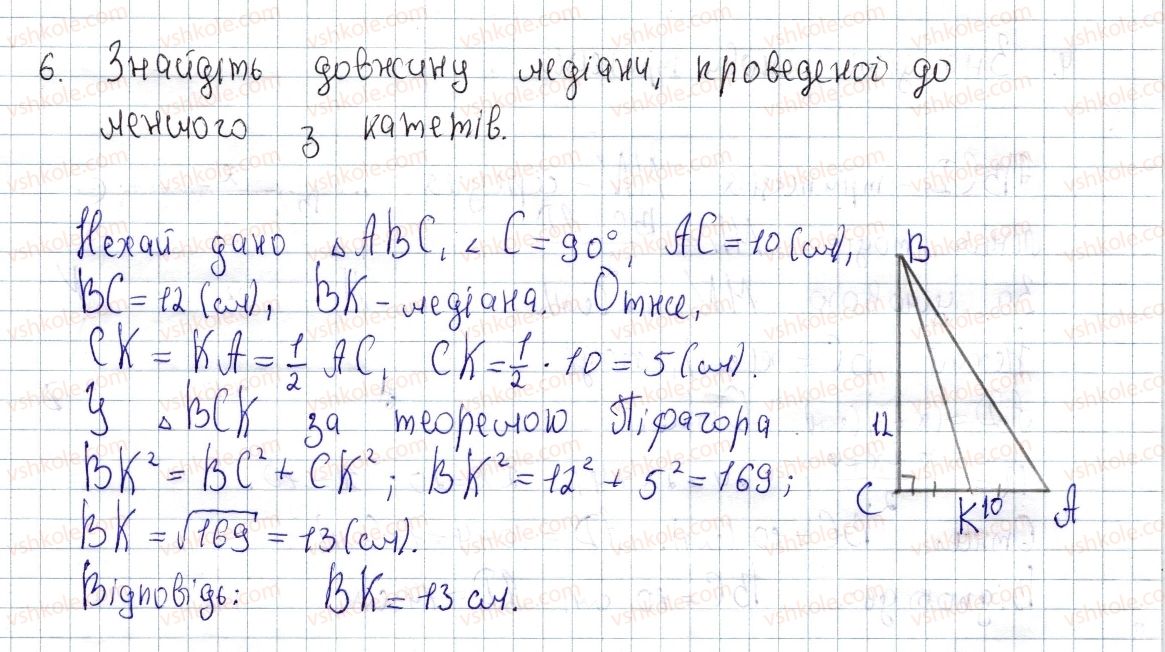 6. Знайдіть довжину медіани, кроведеної до
меншого з катетів.
Нехай дано △ABC, ∠C = 90°, AC = 10 (см),
BC = 12 (см), BK - медіана. Отже,
CK = KA = 1/2 AC, CK = 1/2 · 10 = 5 (см).
У △BCK за теоремою Піфагора
BK² = BC² + CK²; BK² = 12² + 5² = 169;
BK = √169 = 13 (см).
Відповідь: BK = 13 см.
B
12
C
K
10
A
vshkole.com